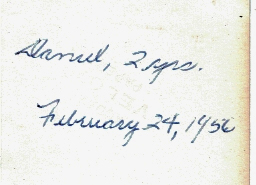 Daniel, 2 yrs.
February 24, 1956